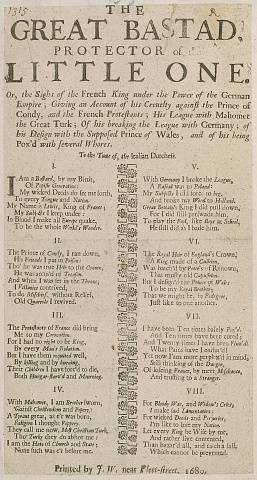 1315
THE
GREAT BASTAD,
PROTECTOR of
LITTLE ONE.
Or, the Sights of the French King under the Power of the German
Empire; Giving an Account of his Cruelty against the Prince of
Condy, and the French Protestants; His League with Mahomet
the Great Turk; Of his breaking the League with Germany; of
his Design with the Supposed Prince of Wales, and of his being
Pox'd with several Whores.
To the Tune of, the Italian Dutchess.
I.
I Am a Bastard, by my Birth,
My wicked Deeds do set me forth,
To every Tongue and Nation.
My Name is Lewis, King of France;
My Subjects I keep under:
In Blood I make all Europe quake,
To be the whole World's Wonder.
II.
The Prince of Condy, I ran down,
His Friends I put to Poison:
Tho' he was true Heir to the Crown,
He was accus'd of Treason.
And when I was set in the Throne,
I Victories contrived,
To do Mischief, without Relief,
Old Quarrels I revived.
III.
The Protestants of France did bring
Me to my Coronation.
For I had no right to be King,
By every Man's Relation.
But I have them repaid well,
By killing and by burning,
Their Children I have forc'd to die,
Both Hunger-starv'd and Mourning.
IV.
With Mahomet, I am Brother sworn,
Against Christendom and Popery:
A Tyrant great, as e'er was born,
Religion I thought Foppery.
They call me now, Most Christian Turk,
Tho' Turky they do abhor me:
I am the Head of Church and State;
None such was e'er before me.
V.
With Germany I broke the League,
My Subjects I still keep so big,
And broke my Word to Holland.
Great Britain's King I did pull down,
For I did still persuade him,
To play the Fool, like Boy in School,
He still did as I bade him.
VI.
The Royal Heir of England's Crown,
A King made of a Cushion,
Was hatch'd by Petre's of Renown,
But mostly of a Capuchin.
But I design'd the Prince of Wales
To be my Royal Brother;
That we might be, in Pedigree,
Just like to one another.
VII.
I have been Ten times basely Pox'd,
And Ten times have been cured:
And Twenty Whores I have been for'd
What Pains have I endur'd!
Yet now I am more perplext in mind,
With thinking of the Danger,
Of losing France, by meer Mischance,
And trusting to a Stranger.
VIII.
For Bloody War, and Widow's Cries,
I make sad Lamentation:
For wicked Deeds and Perjuries,
I'm like to lose my Nation.
Let every King be Wise by me,
And rather live contented,
Than hazard all, and such a fall,
Which cannot be prevented.
Printed by J. W. near Fleet-street. 1689.